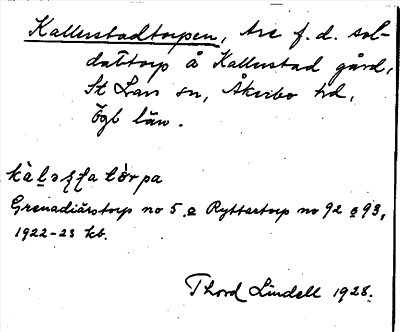 Kallerstadtorpen, tre f.d. sol-
dattorp å Kallerstad gård,
St Lars sn, Åkerbo hd,
Ögl län.
Grenadiärstorp no 5 o Ryttartorp no 92 o 93,
1922-23 kb.
Thord Lindell 1928.